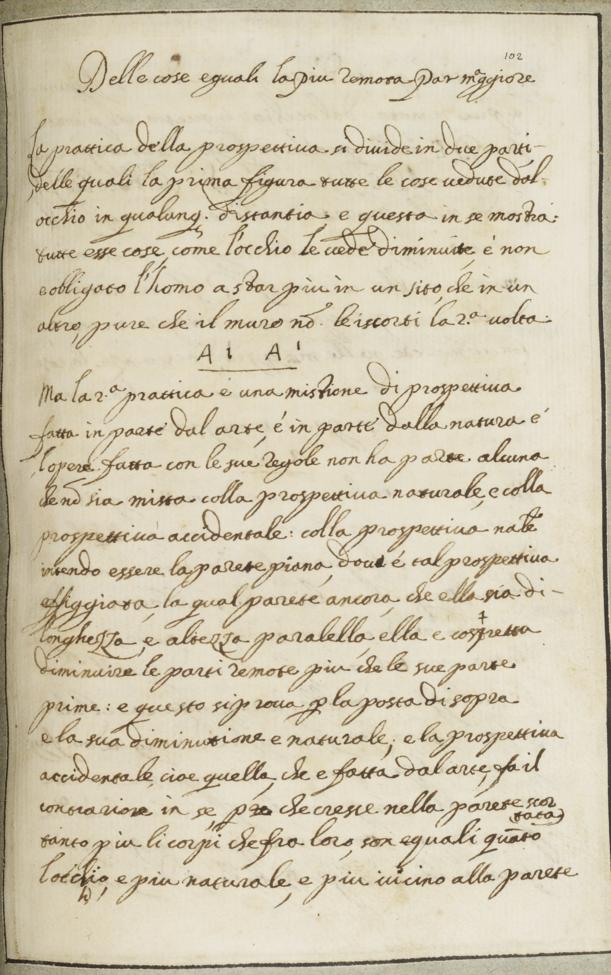 102
Delle cose eguali la piu remota par mag̃giore
la prattica della prospettiva si divide in due parti-
delle quali la prima figura tutte le cose vedute dal-
occhio in qualunq. distantia e questa in se mostra:
tutte esse cose, come l'occhio le vede diminuite, é non
é obligato l'homo a star piu in un sito che in un
altro, pure che il muro nõ. le iscorti la 2.a volta.
A 1 A 1
Ma la 2.a prattica é una mistione di prospettiva
fatta in parte dal arte, é in parte dalla natura é
l'opere fatta con le sue regole non ha parte alcuna
che nõ sia mista colla prospettiva naturale, e colla
prospettiva accidentale: colla prospettiva nãle
intendo essere la parete piana, dove é tal prospettiva
effiggiata, la qual parete, ancora che ella sia di-
longhezza, e altezza paralella ella e costretta
diminuire le parti remote piu che le sue parte
prime: e questo si prova p la posta di sopra
e la sua diminutione e naturale; e la prospettiva
accidentale, cioe quella, che e fatta dal arte, fa il
contrario in se, che cresce nella parete scor
tata
tanto piu li corpi che fra loro, son equali, quãto
l'occhio, e piu naturale, e piu vicino alla parete